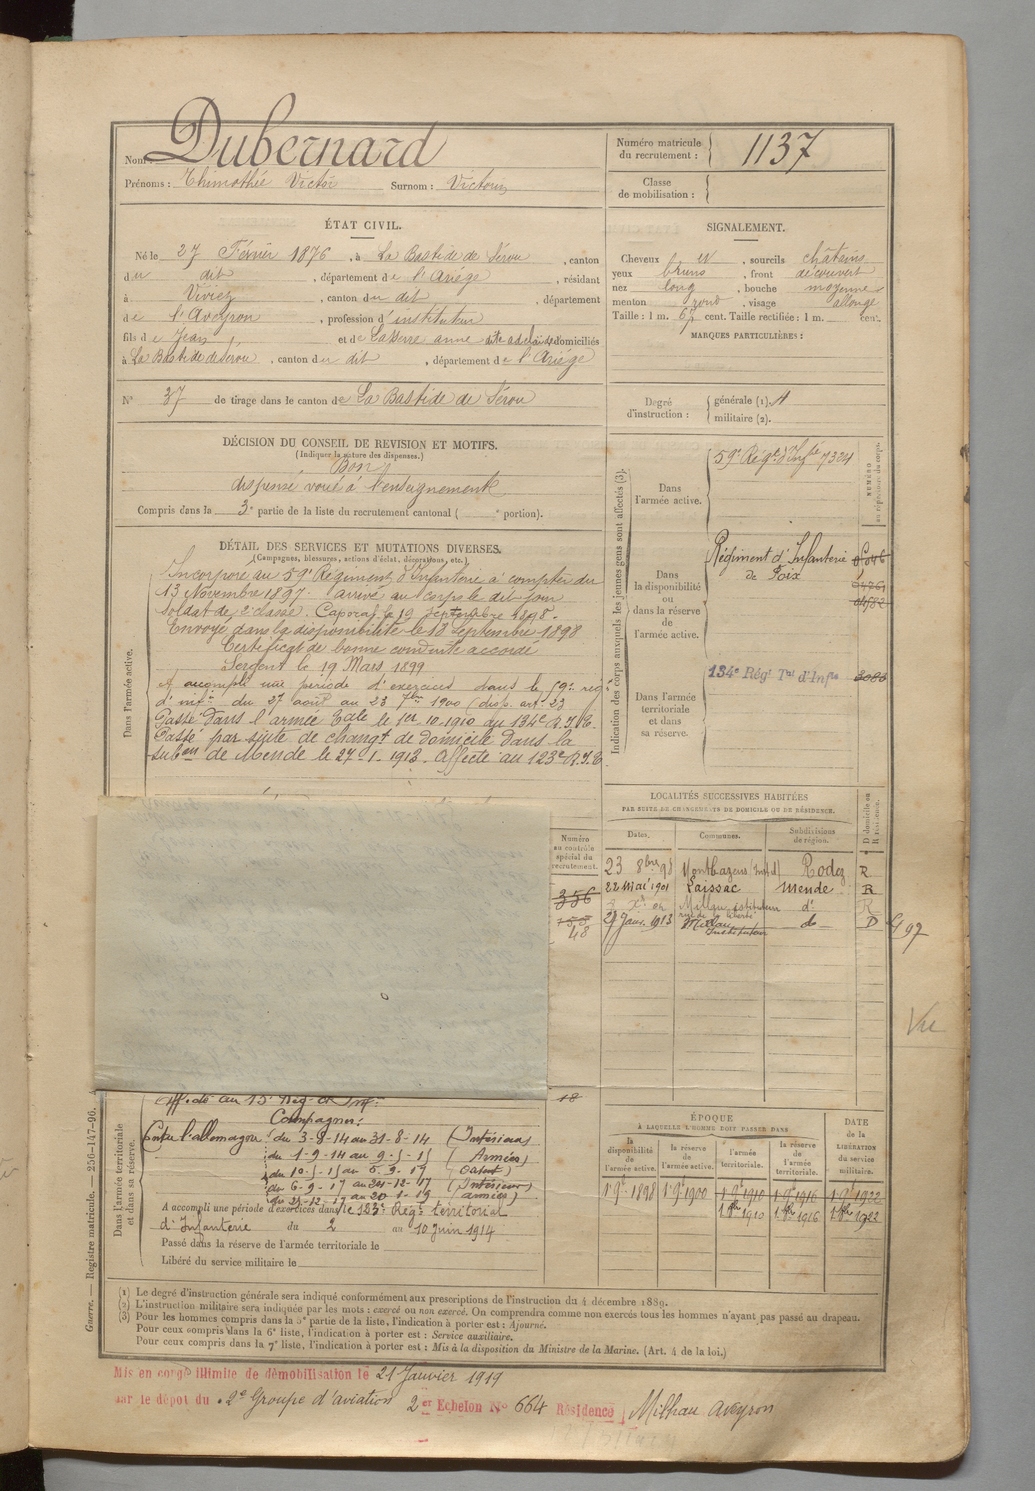 Nom : Dubernard
Prénoms : Thimothé Victor Surnom : Victorin
Numéro matricule du recrutement : 1137
Classe de mobilisation :
ÉTAT CIVIL.
Né le 27 Février 1876, à La Bastide de Sérou, canton
du dit, département de l'Ariége, résidant
à Viviez, canton du dit, département
de l'Aveyron, profession d'instituteur
fils de Jean et de Laserre anne dite adelaïde domiciliés
à La Bastide de Sérou, canton du dit, département de l'Ariége
N° 37 de tirage dans le canton de La Bastide de Sérou
SIGNALEMENT.
Cheveux et, sourcils châtains
yeux bruns, front découvert
nez long, bouche moyenne
menton rond, visage allongé
Taille : 1 m. 67 cent. Taille rectifiée : 1 m. cent.
MARQUES PARTICULIÈRES :
Degré d'instruction :
générale (1). 4
militaire (2).
DÉCISION DU CONSEIL DE REVISION ET MOTIFS.
(Indiquer la nature des dispenses.)
Bon
dispensé voué à l'enseignement
Compris dans la 3e partie de la liste du recrutement cantonal ( e portion).
DÉTAIL DES SERVICES ET MUTATIONS DIVERSES.
(Campagnes, blessures, actions d'éclat, décorations, etc.)
Dans l'armée active.
Incorporé au 59e Régiment d'Infanterie à compter du
13 Novembre 1897. arrivé au corps le dit jour
soldat de 2e classe. Caporal le 19 Septembre 1898.
Envoyé dans la disponibilité le 18 Septembre 1898
Certificat de bonne conduite accordé
Sergent le 19 Mars 1899
A accompli une période d'exercices dans le 59e rég
d'infie du 27 août au 23 7bre 1900 (disp. art. 23
Passé dans l'armée Tale le 1er.10.1910 au 134e R.T.I.
Passé par suite de changt de domicile dans la
subon de Mende le 27-1-1913. Affecté au 123e R.T.I
Indication des corps auxquels les jeunes gens sont affectés (3).
Dans l'armée active.
59e Régt d'Infie 7324
NUMÉRO au répertoire du corps.
Dans la disponibilité ou dans la réserve de l'armée active.
Régiment d'Infanterie
de Foix
Dans l'armée territoriale et dans sa réserve.
134e Régt Tal d'Infie 3086
LOCALITÉS SUCCESSIVES HABITÉES
PAR SUITE DE CHANGEMENTS DE DOMICILE OU DE RÉSIDENCE.
Numéro au contrôle spécial du recrutement.
Dates. Communes. Subdivisions de région. D domicile ou R résidence.
23 8bre 98 Montbazens Rodez R
356 22 Mai 1901 Laissac Mende R
Millau instituteur d° R
rue de la liberté
27 Janv. 1913 Millau do D
Instituteur
48
Vu
Affecté au 15e Rég. d'Inf.
18
Campagnes:
Contre l'allemagne du 3-8-14 au 31-8-14 (Intérieur)
du 1-9-14 au 9-5-15 (Armées)
du 10-5-15 au 5-9-17
du 6-9-17 au 24-12-17 (Intérieur)
du 25-12-17 au 20-1-19 (armées)
Dans l'armée territoriale et dans sa réserve.
A accompli une période d'exercices dans le 123e Régt territorial
d'Infanterie du 2 au 10 Juin 1914
Passé dans la réserve de l'armée territoriale le
Libéré du service militaire le
ÉPOQUE
À LAQUELLE L'HOMME DOIT PASSER DANS
la disponibilité de l'armée active. la réserve de l'armée active. l'armée territoriale. la réserve de l'armée territoriale. DATE de la LIBÉRATION du service militaire.
1 9e 1898 1 9e 1900 1 9e 1910 1 9e 1916 1 9e 1922
1 8bre 1910 1 8bre 1916 1 8bre 1922
Guerre. — Registre matricule. — 256-147-96.
(1) Le degré d'instruction générale sera indiqué conformément aux prescriptions de l'instruction du 4 décembre 1889.
(2) L'instruction militaire sera indiquée par les mots : exercé ou non exercé. On comprendra comme non exercés tous les hommes n'ayant pas passé au drapeau.
(3) Pour les hommes compris dans la 5e partie de la liste, l'indication à porter est : Ajourné.
Pour ceux compris dans la 6e liste, l'indication à porter est : Service auxiliaire.
Pour ceux compris dans la 7e liste, l'indication à porter est : Mis à la disposition du Ministre de la Marine. (Art. 4 de la loi.)
Mis en congé illimité de démobilisation le 21 Janvier 1919
par le dépot du 2e Groupe d'aviation 2er Echelon N° 664 Résidence Milhau Aveyron